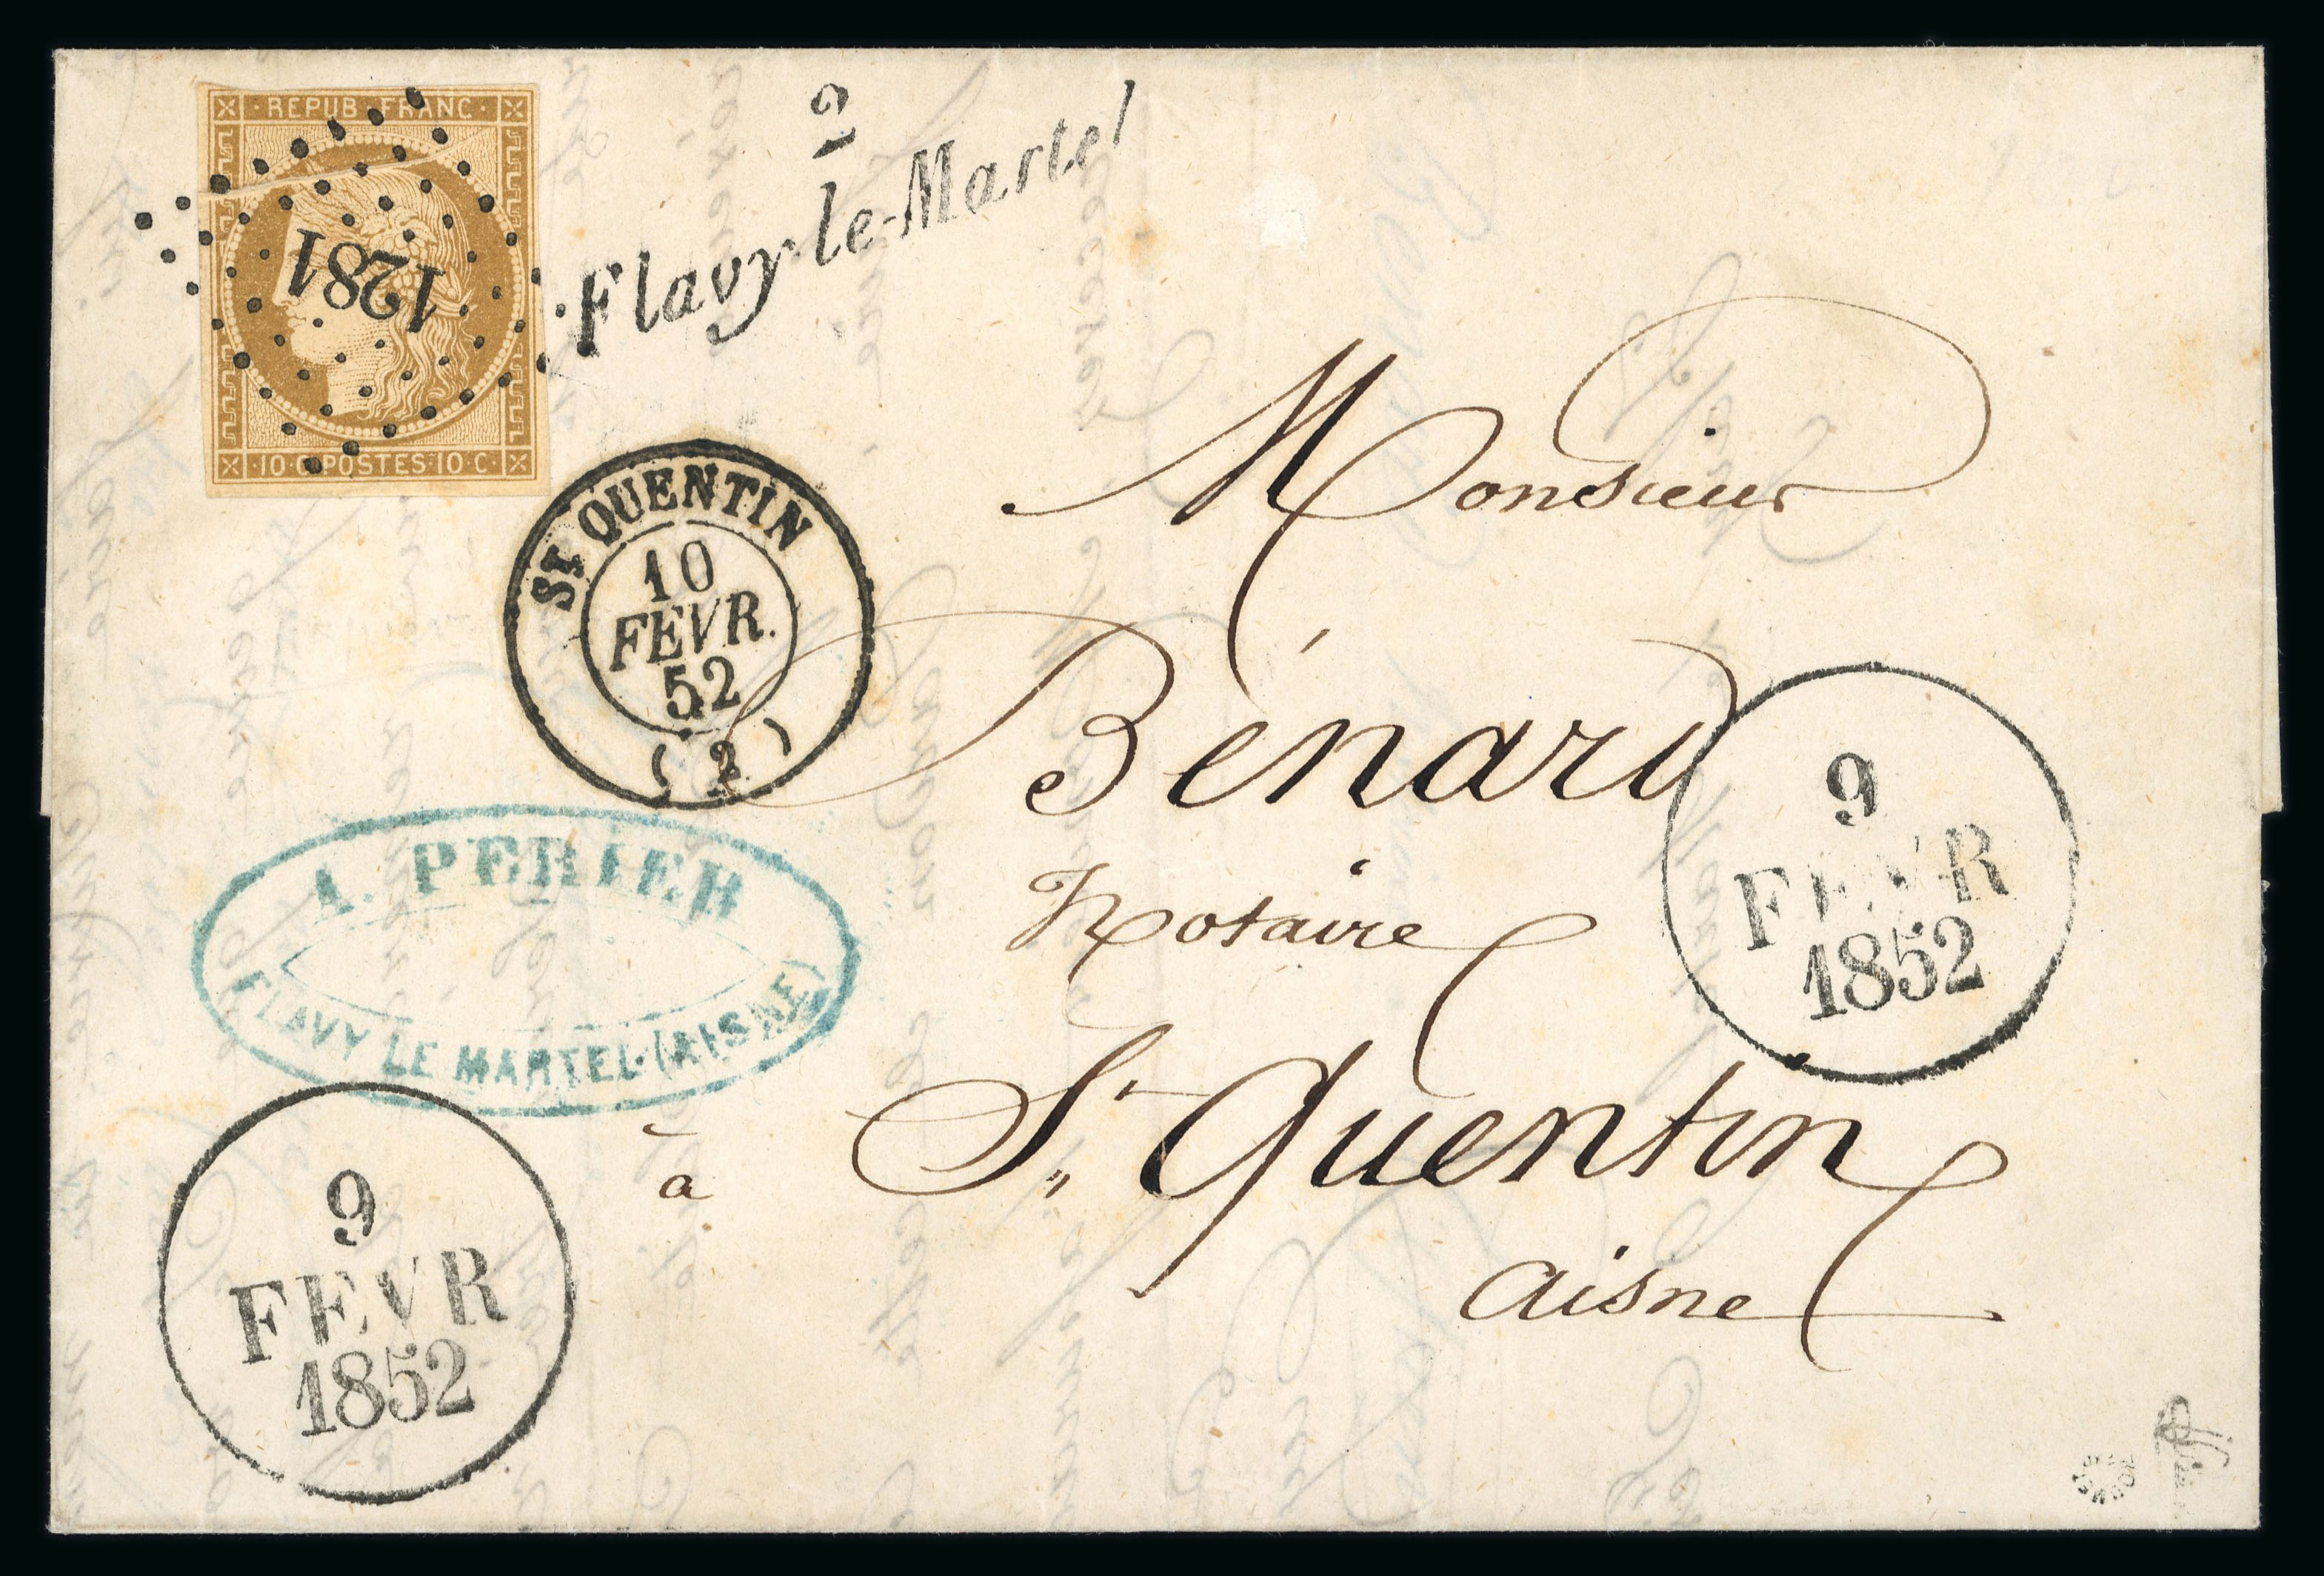 REPUB·FRANC·
1281
10·C·POSTES·10·C·
2
Flavy-le-Martel
St QUENTIN
10
FEVR.
52
(2)
Monsieur
Bénard
Notaire
à St Quentin
Aisne
A. PERIER
FLAVY LE MARTEL (AISNE)
9
FEVR
1852
9
FEVR
1852